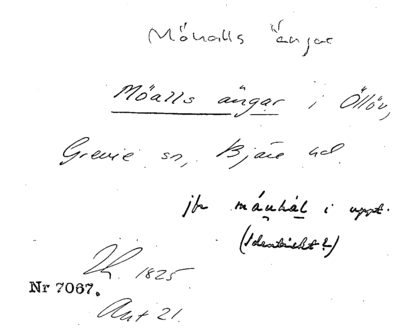 Mönalls ängar
Möalls ängar i Öllöv,
Grevie sn, Bjäre hd.
jfr månhål i uppt.
(Identiskt?)
1825
Nr 7067.
Akt 21.